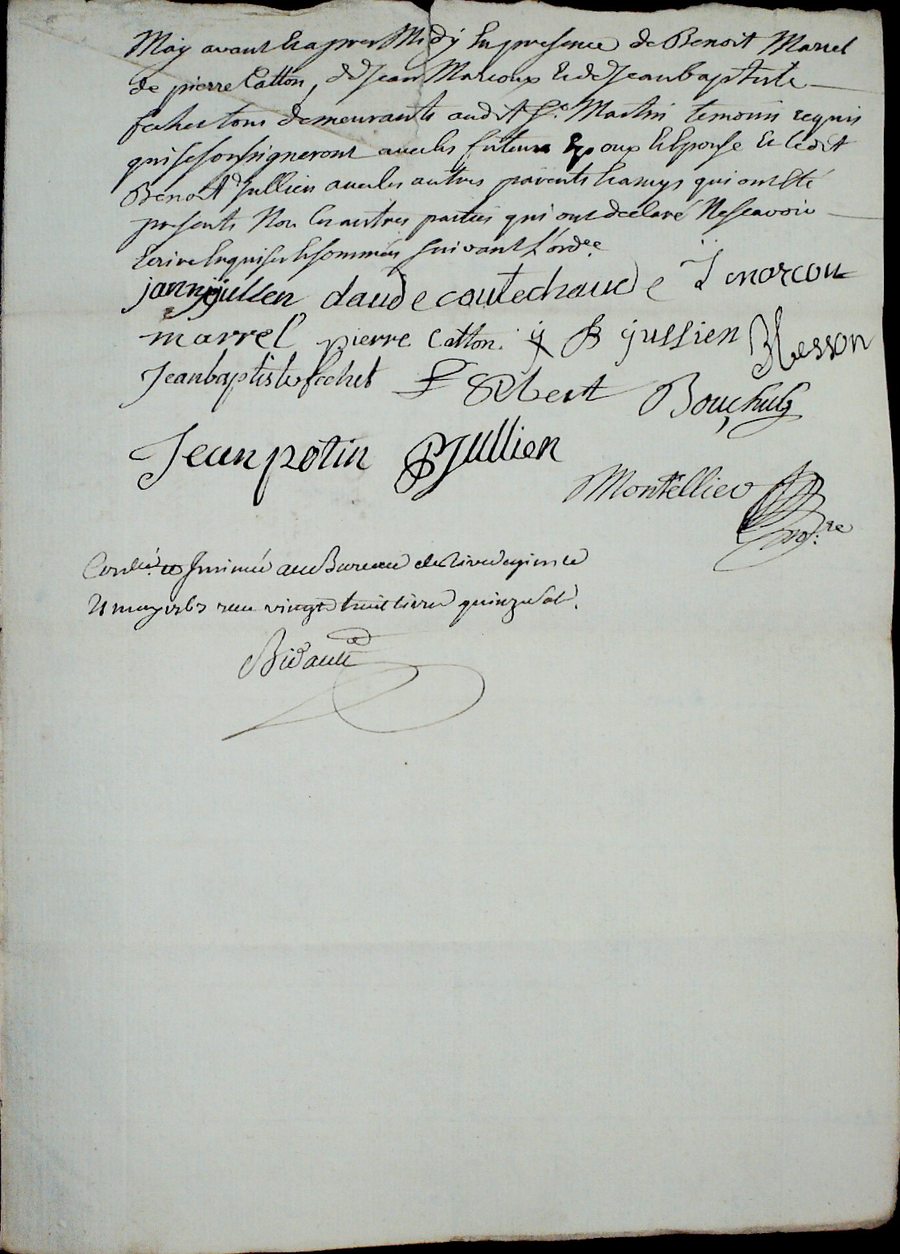 May avant & apres Midÿ En presence de Benoit Marrel
de pierre Catton, de Jean Marcoux & de Jeanbaptiste
fechet tous demeurants audit St. Martin temoins requis
qui se sousigneront avec les futurs Epoux & Epouse & ledit
Benoit Jullien avec les autres parents & amys qui ont Eté
presents Non les autres parties qui ont declaré Ne scavoir
Ecrire Enquis & sommés suivant l'ordce
jullien claude J marcou
marrel pierre catton B jullien Besson
Jeanbaptiste fechet
Jean potin BJullien
Montellier nore
Controllé & Insinué au Bureau de Rivedegier le
may vingt huit livres quinze sols.